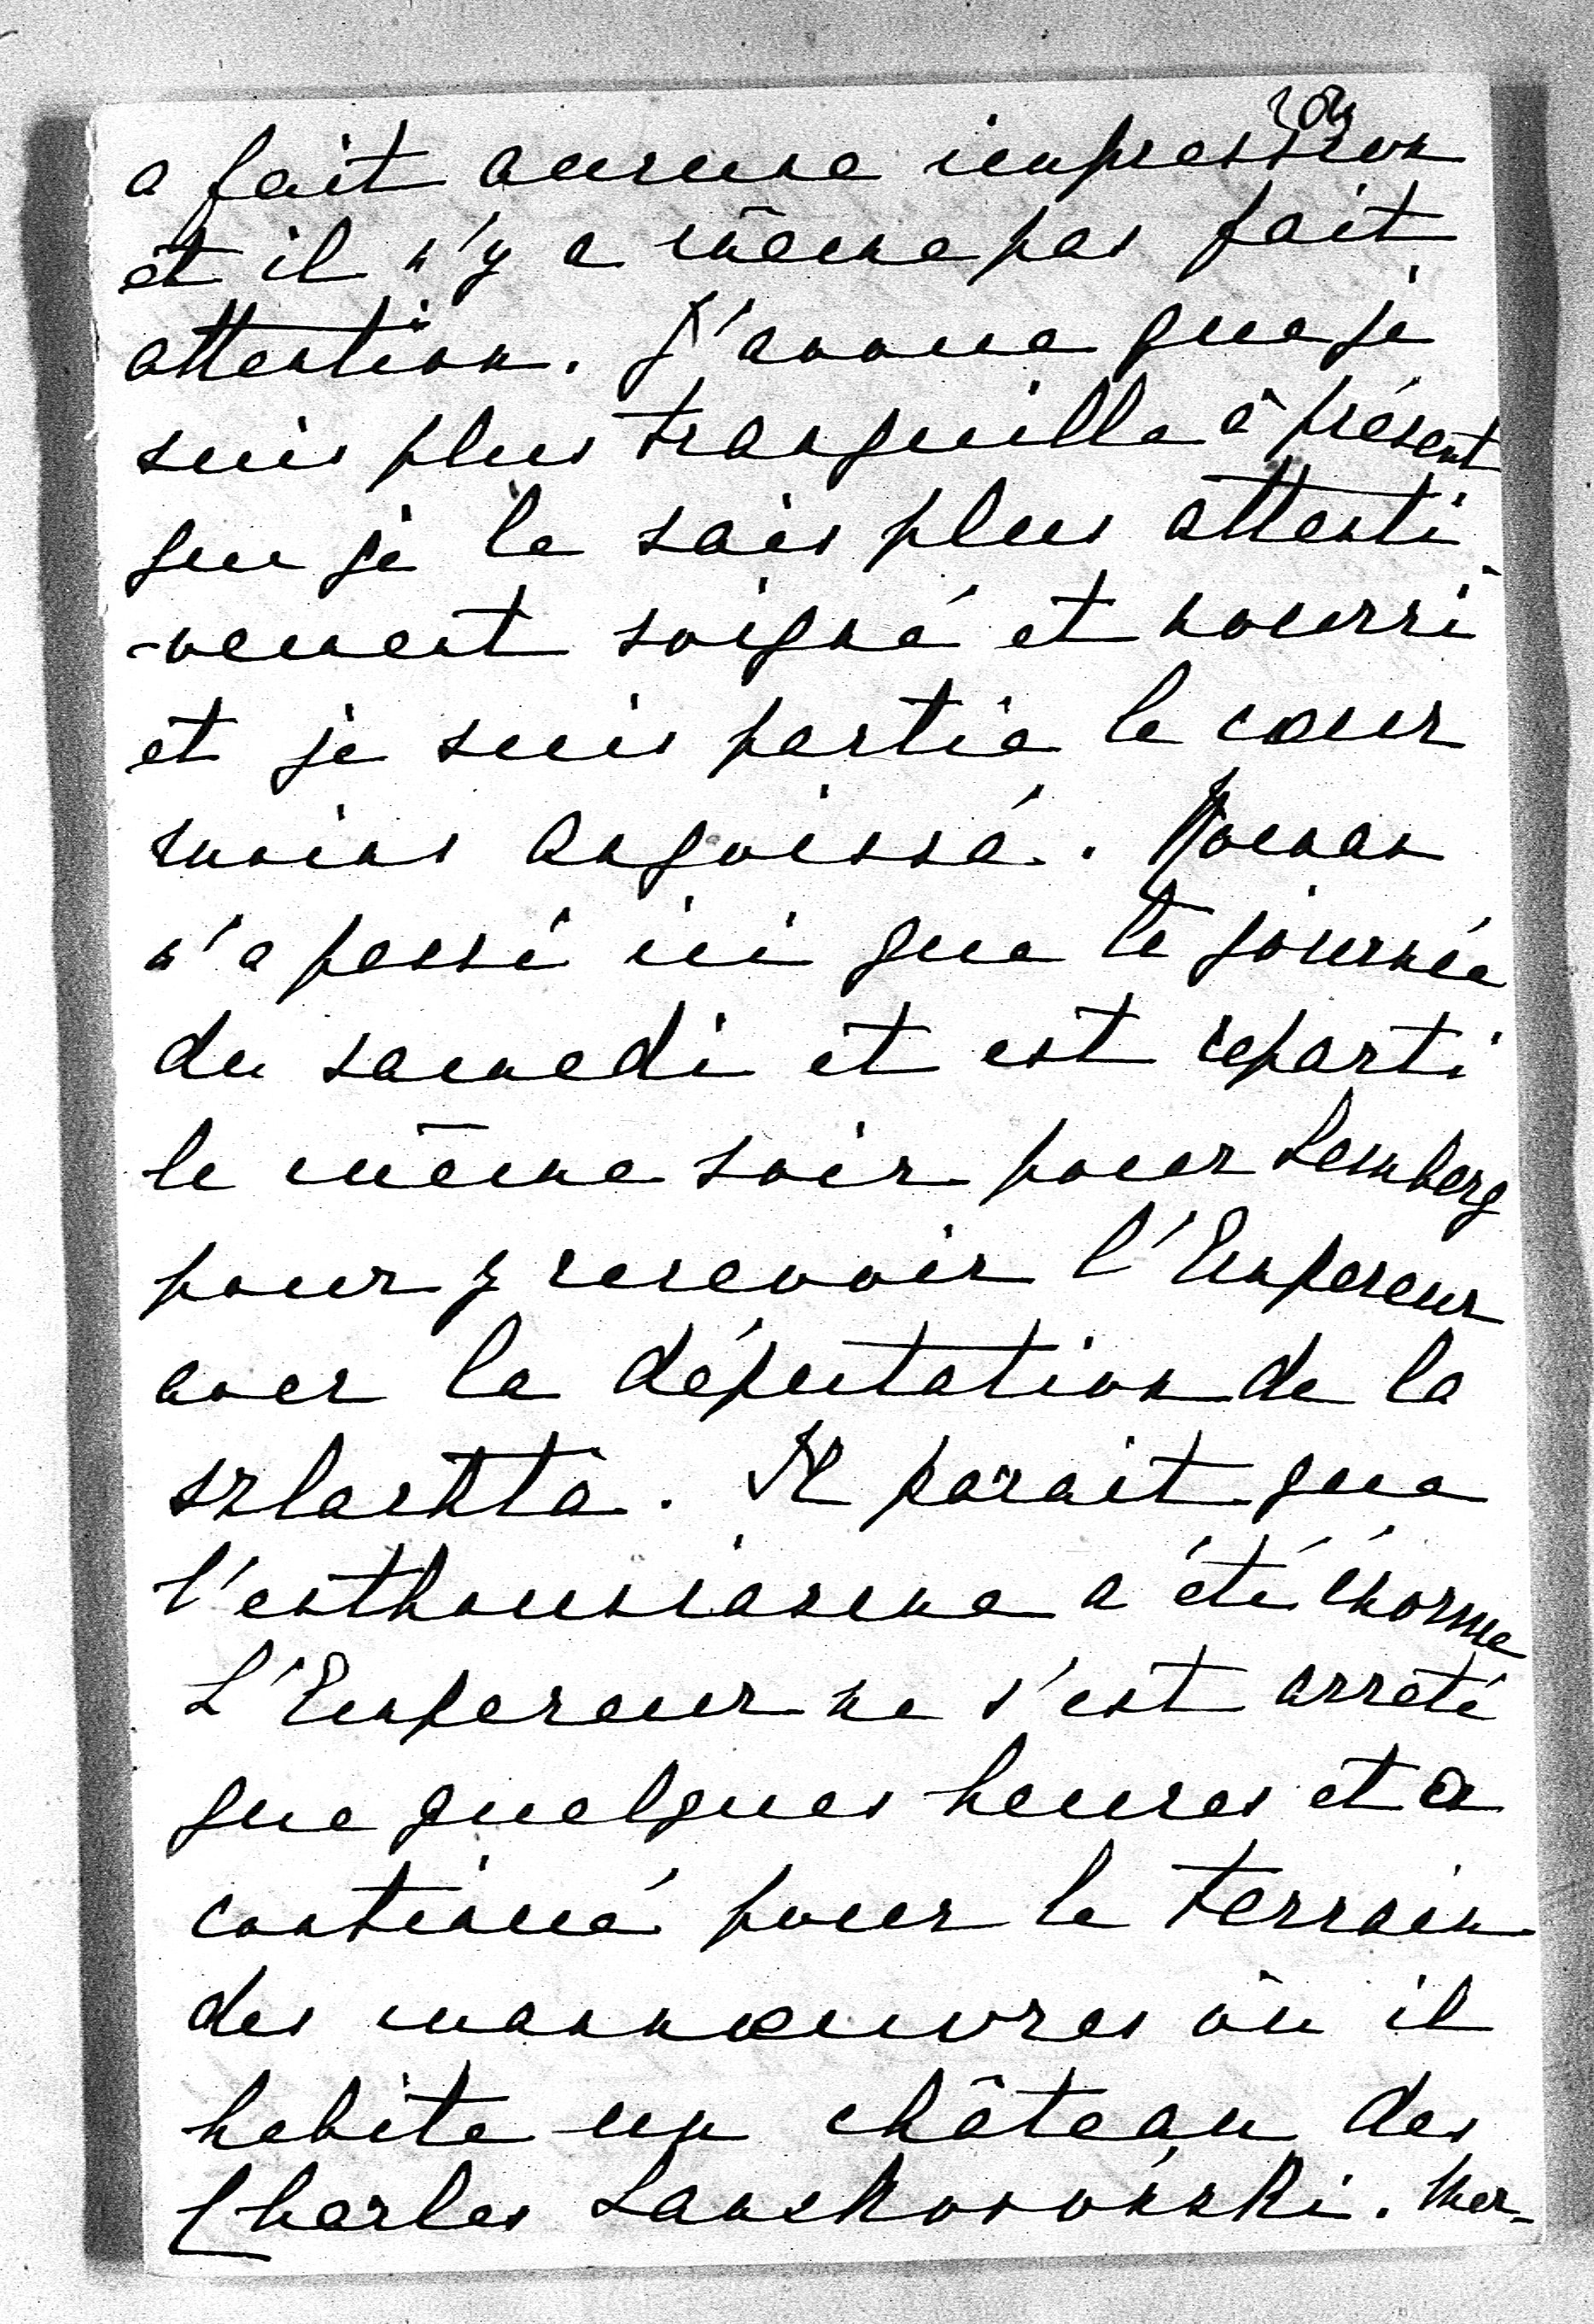 a fait aucune impression
et il n'y a même pas fait
attention. J'avoue que je
suis plus tranquille à présent
que je le sais plus attenti-
-vement soigné et nourri
et je suis partie le cœur
moins angoissé. Roman
n'a passé ici que la journée
du samedi et est reparti
le même soir pour Lemberg
pour y recevoir l'Empereur
avec la députation de la
szlachta. Il parait que
l'enthousiasme a été énorme
L'Empereur ne s'est arrêté
que quelques heures et a
continué pour le terrain
des manœuvres où il
habite un château des
Charles Lanckoroński. Mer-